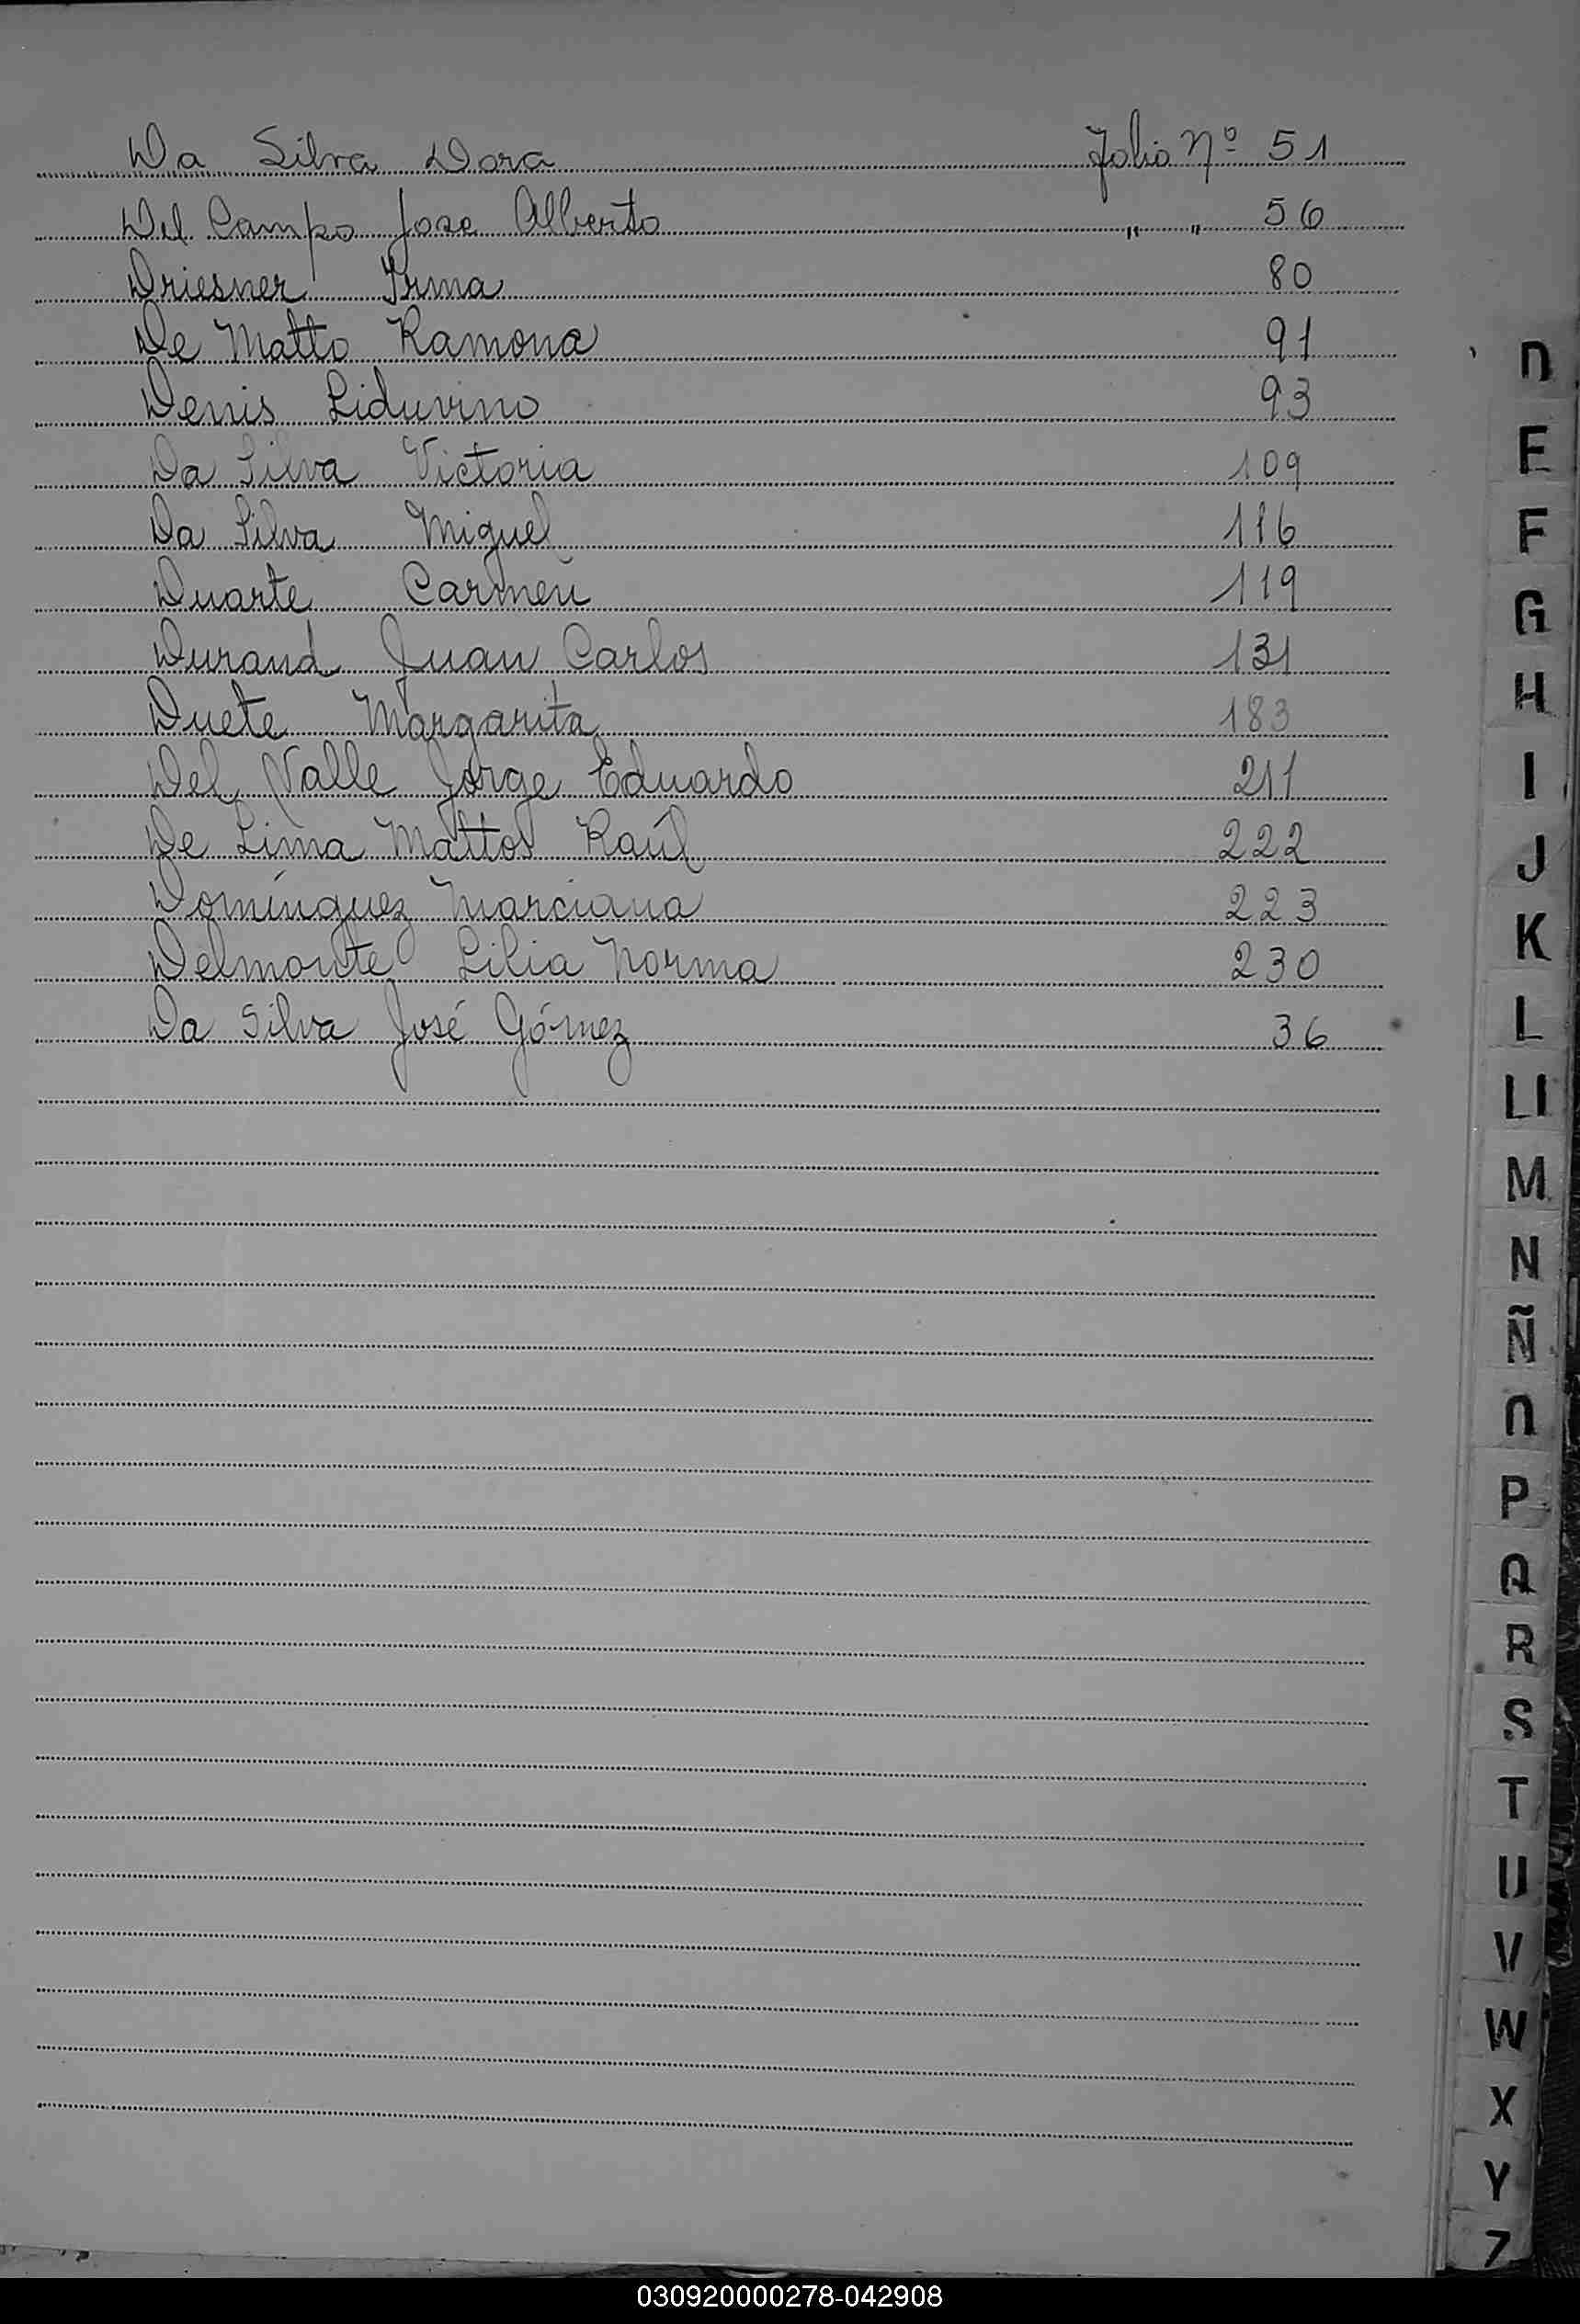 Da Silva Dora Folio Nº 51
Del Campo Jose Alberto " " 56
Driesner Irma 80
De Matto Ramona 91
Denis Liduvino 93
Da Silva Victoria 109
Da Silva Miguel 116
Duarte Carmen 119
Durand Juan Carlos 131
Duete Margarita 183
Del Valle Jorge Eduardo 211
De Lima Mattos Raúl 222
Domínguez Marciana 223
Delmonte Lilia Norma 230
Da Silva José Gómez 36
D
E
F
G
H
I
J
K
L
Ll
M
N
Ñ
O
P
Q
R
S
T
U
V
W
X
Y
Z
030920000278-042908